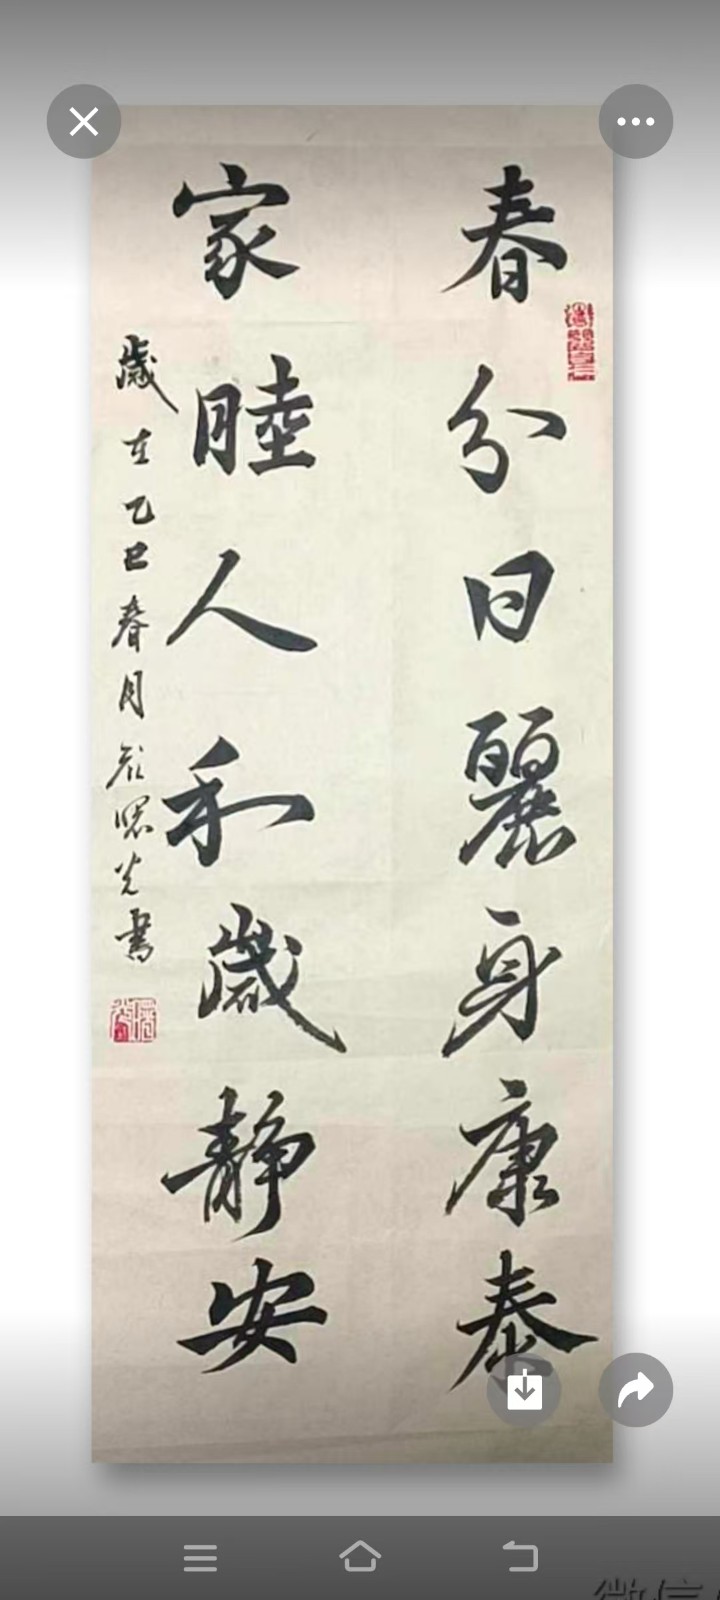 春分日麗身康泰
家睦人和歲靜安
歲在乙巳春月
曙光書
微信